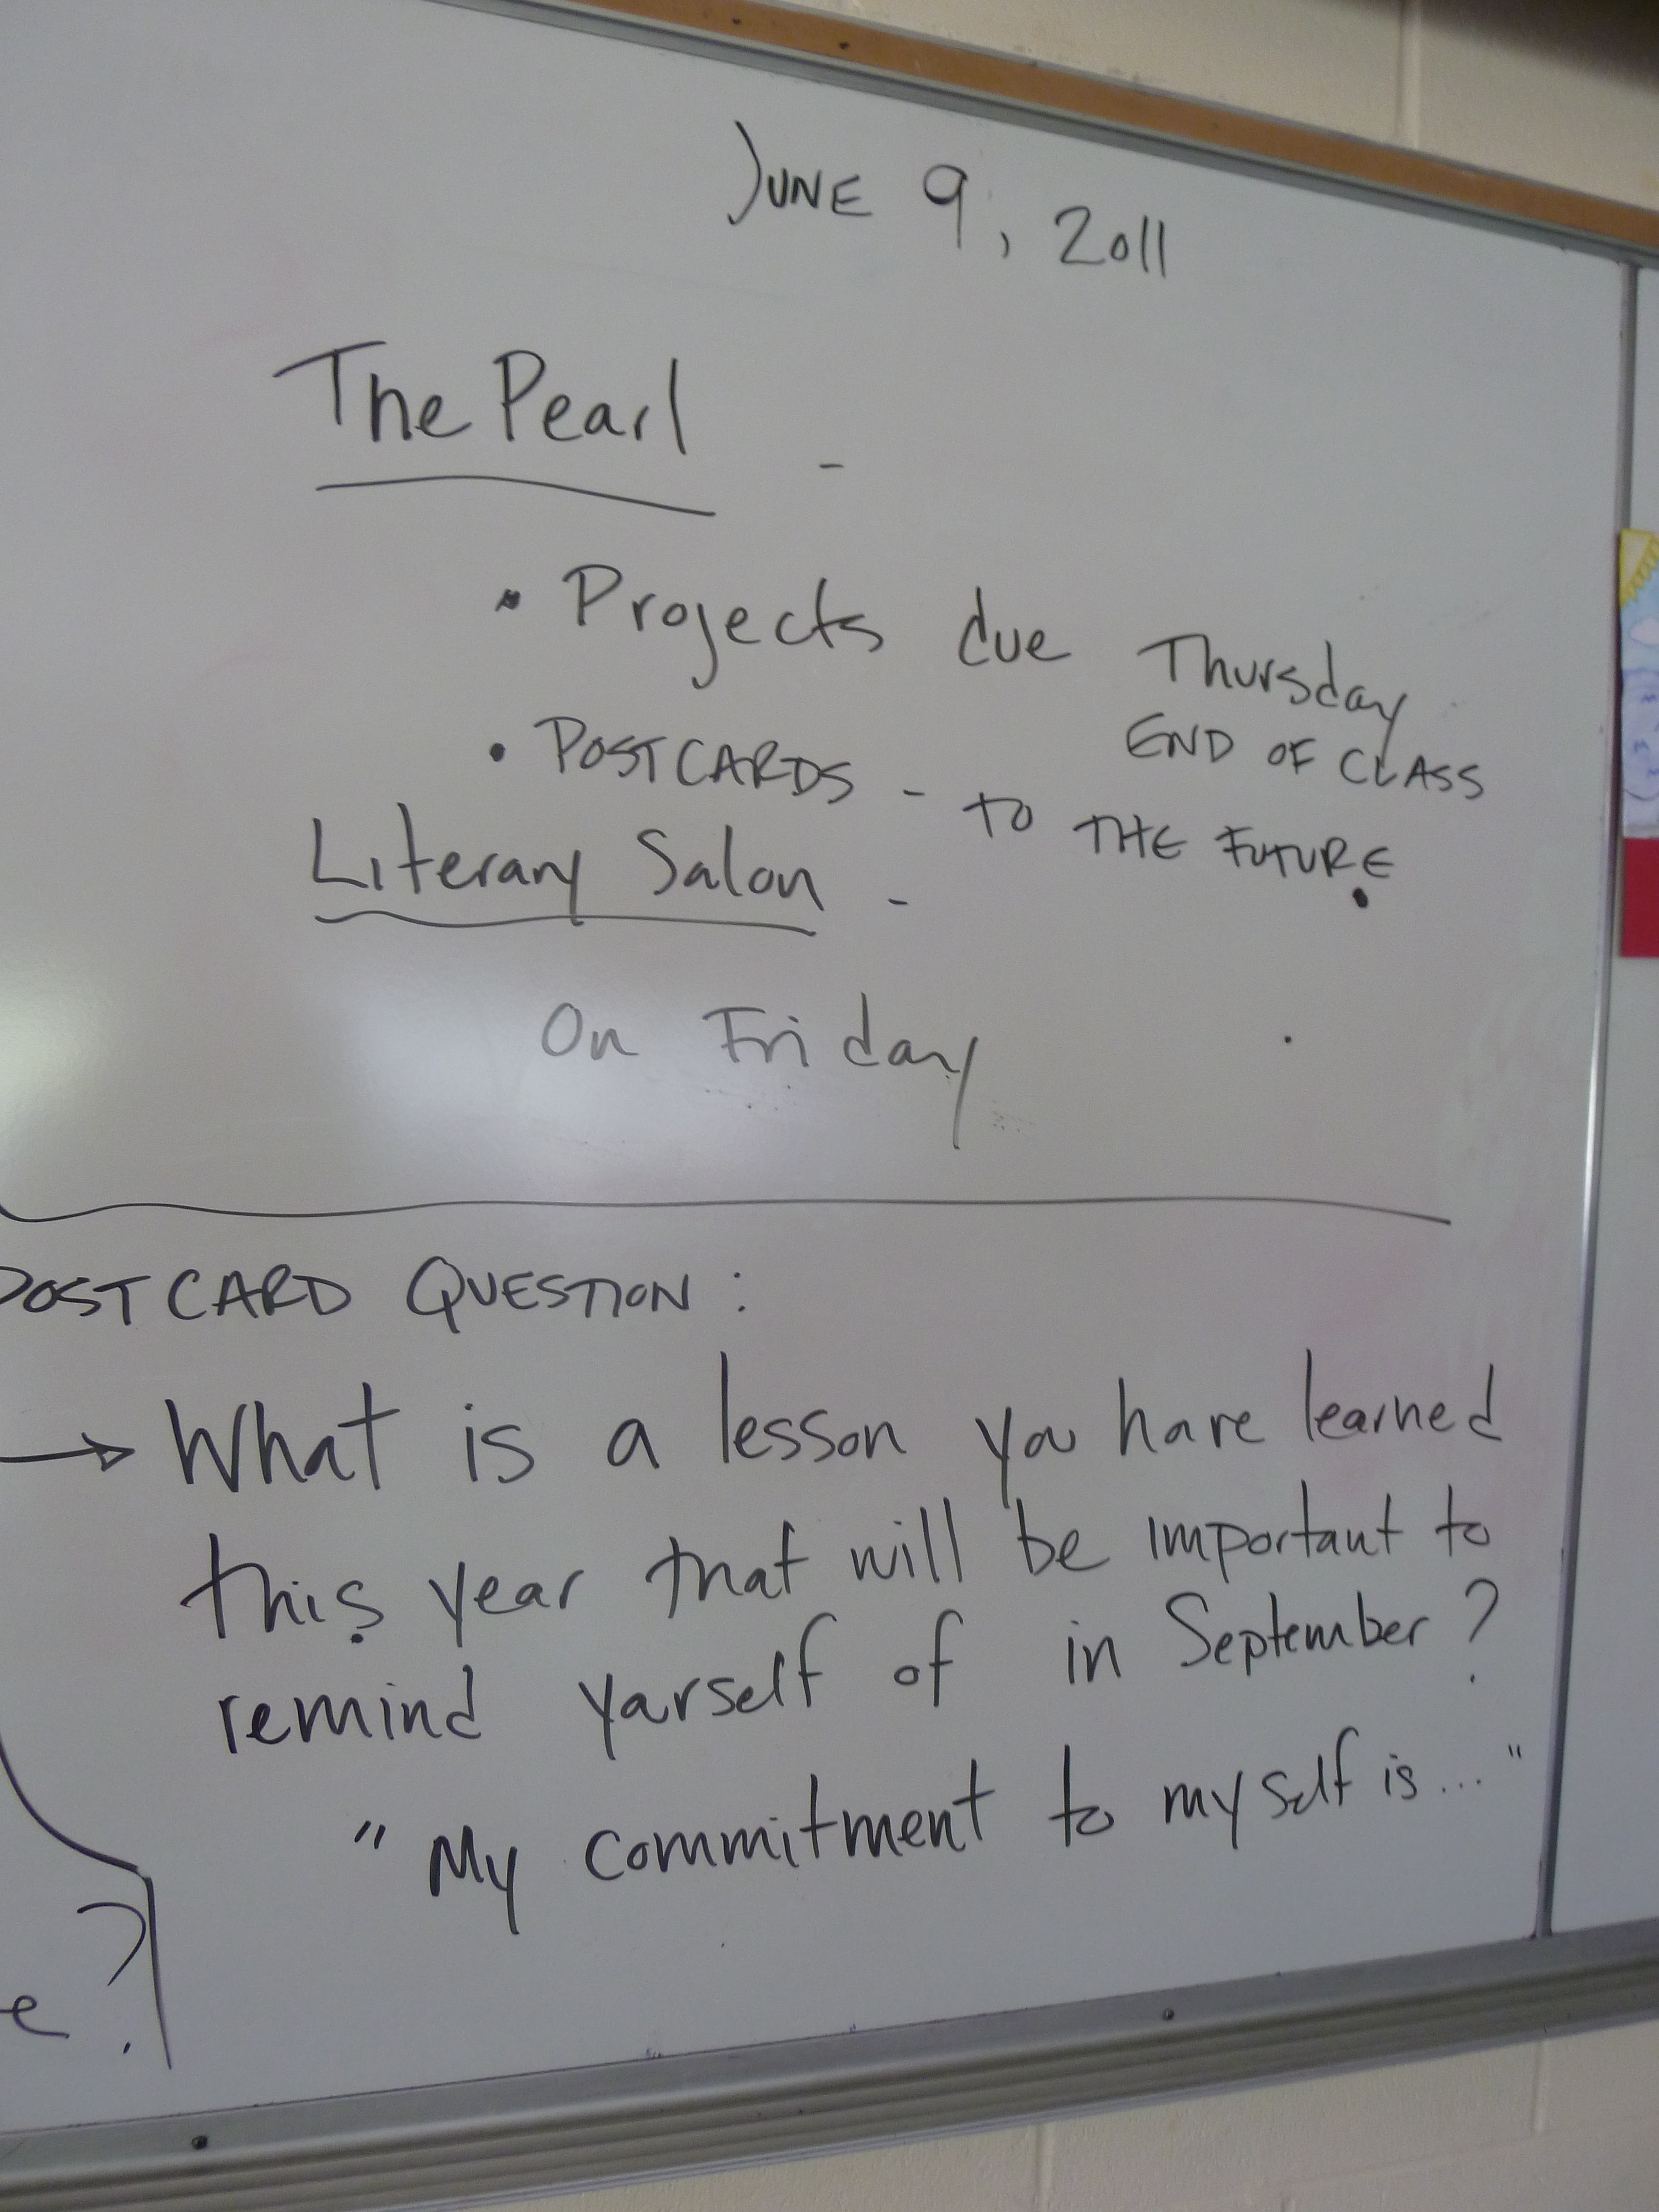 JUNE 9, 2011
The Pearl -
• Projects due Thursday
END OF CLASS
• POSTCARDS - TO THE FUTURE
Literary Salon -
On Friday
POSTCARD QUESTION:
→ What is a lesson you have learned
this year that will be important to
remind yourself of in September?
"My commitment to myself is..."
e?